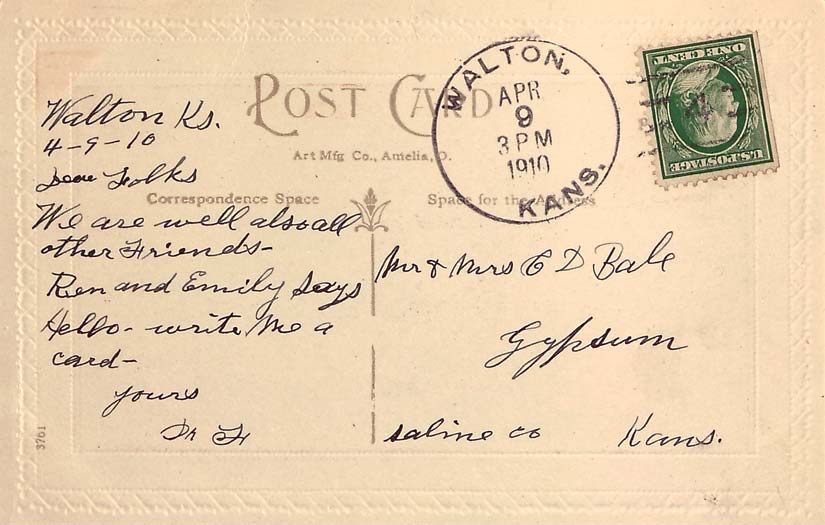 POST CARD
Art Mfg Co., Amelia, O.
Correspondence Space
Space for the Address
WALTON,
APR
9
3 PM
1910
KANS.
ONE CENT
U.S. POSTAGE
Walton Ks.
4-9-10
Dear Folks
We are well also all
other Friends-
Ren and Emily Says
Hello- write Me a
card-
yours
Mr & Mrs E D Bale
Gypsum
Saline co Kans.
3761